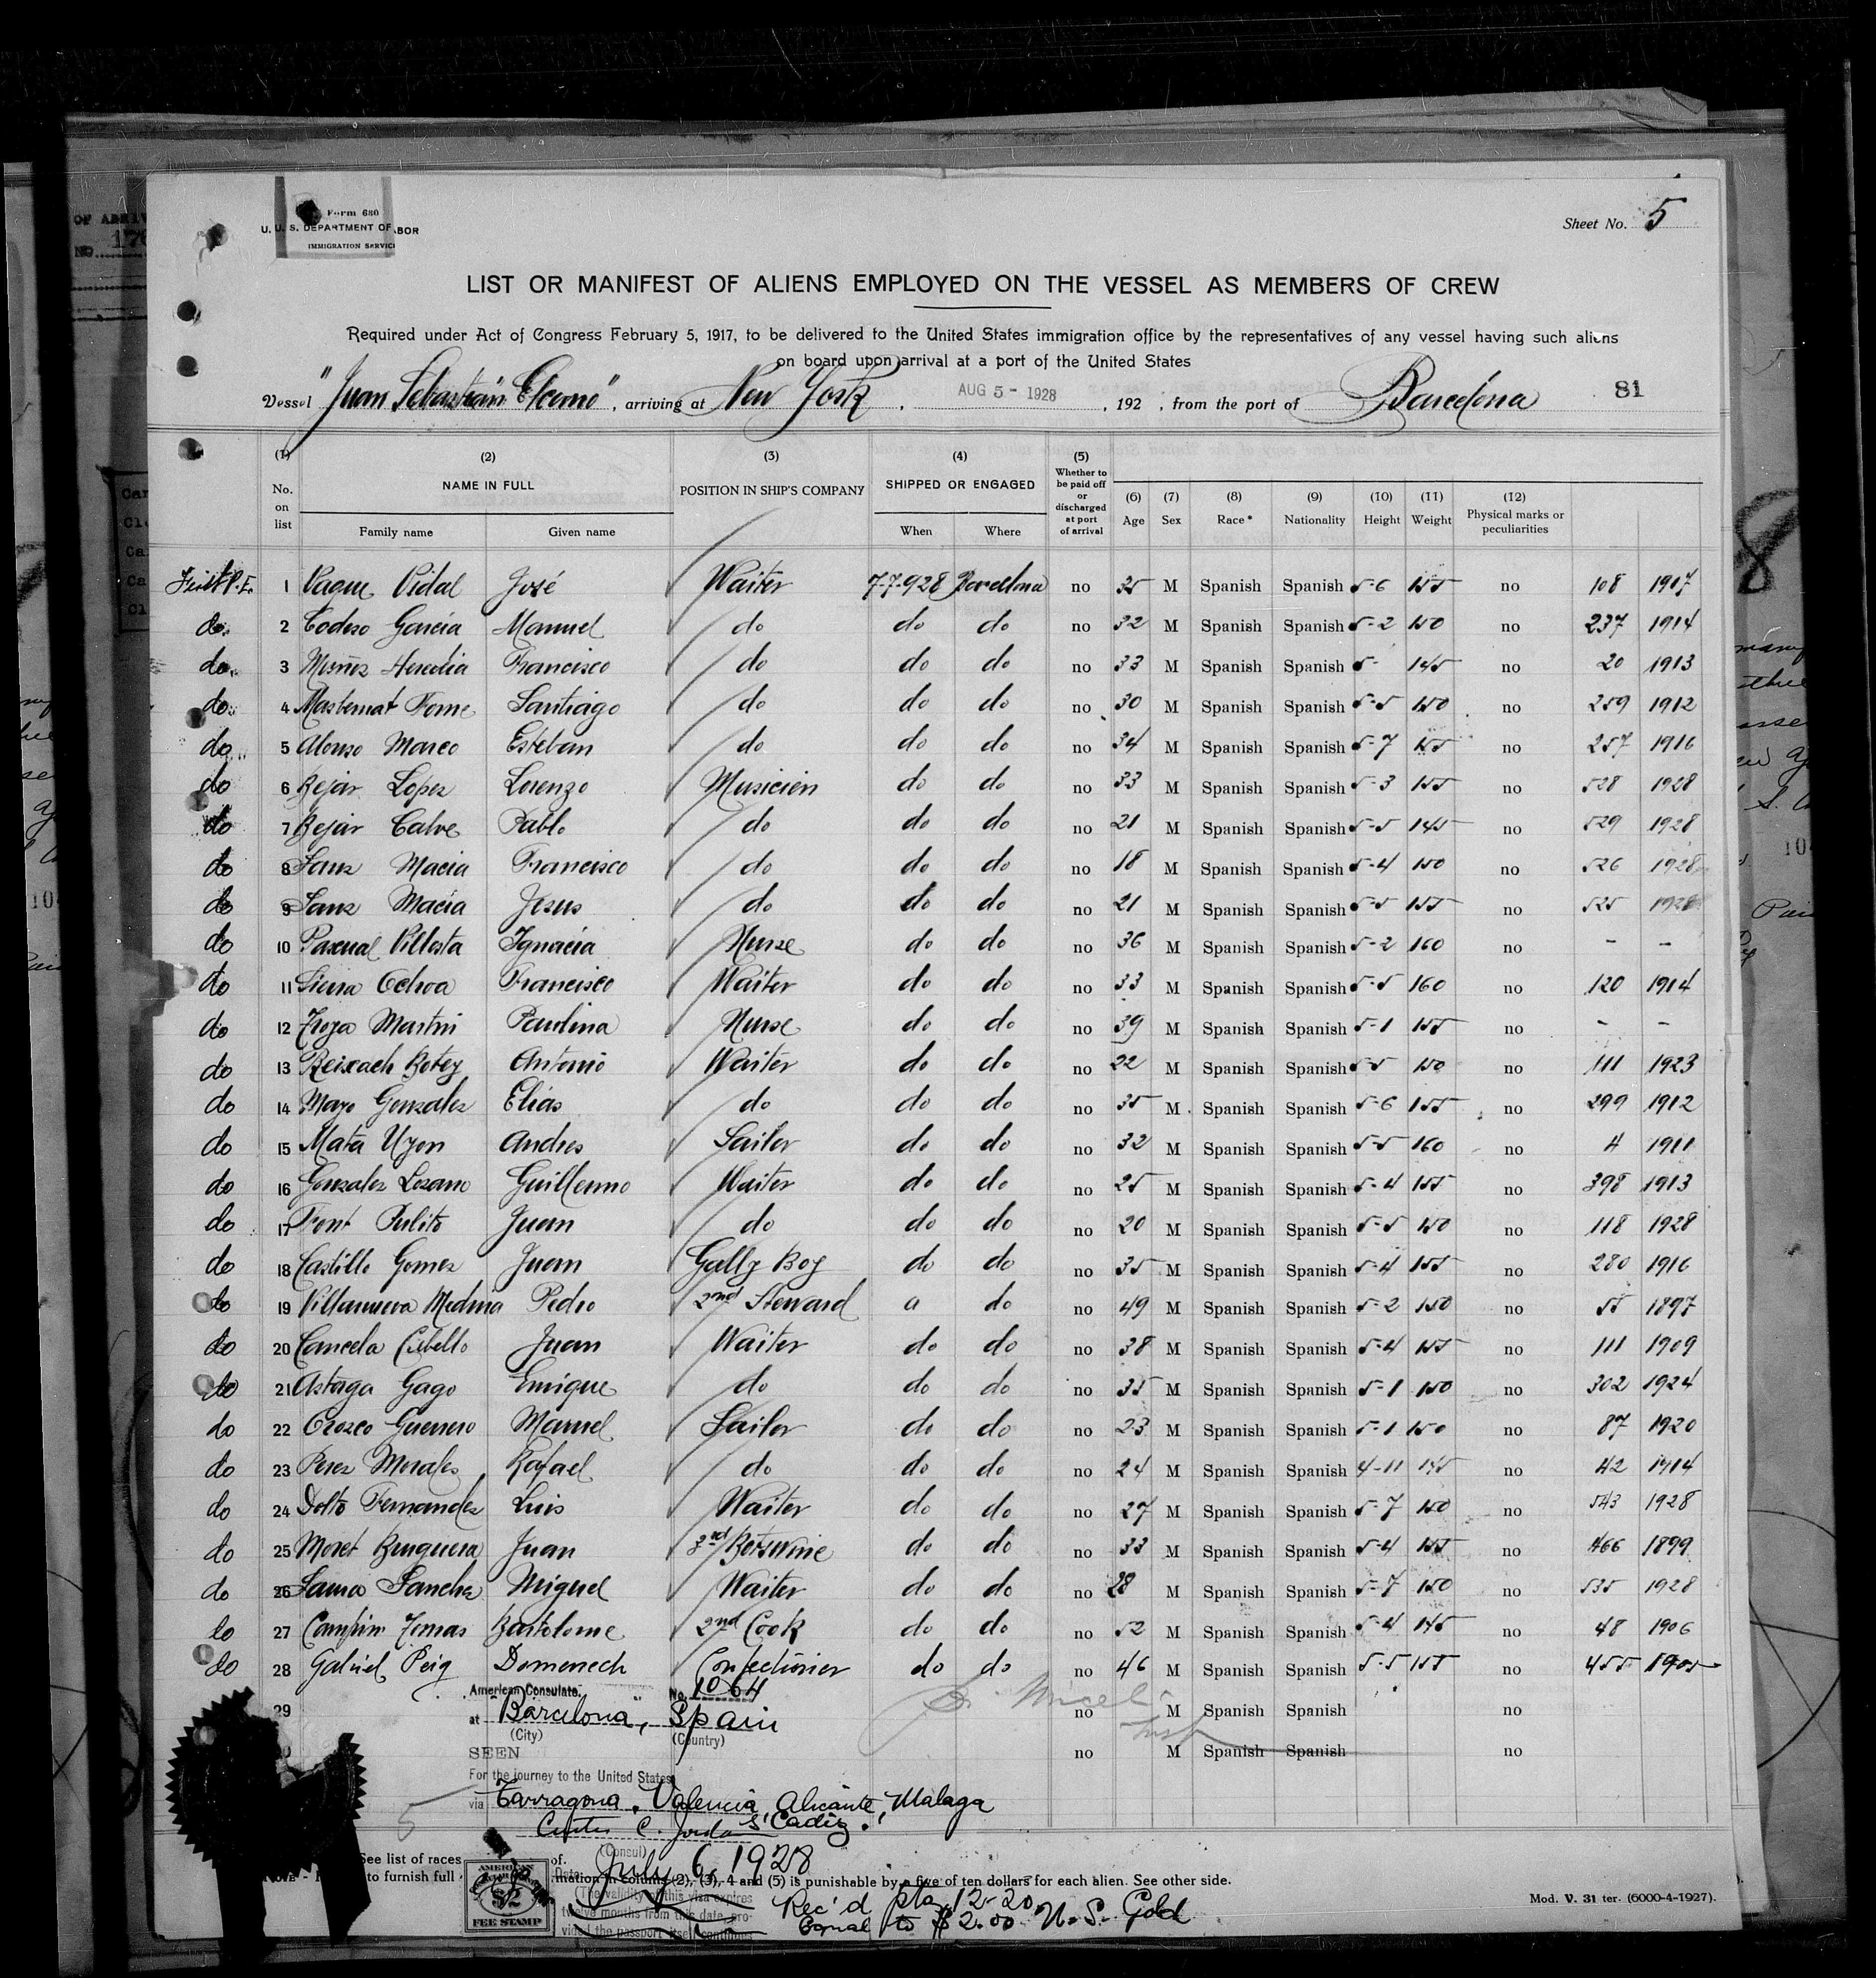 Form 680
U. S. DEPARTMENT OF LABOR
IMMIGRATION SERVICE
Sheet No. 5
LIST OR MANIFEST OF ALIENS EMPLOYED ON THE VESSEL AS MEMBERS OF CREW
Required under Act of Congress February 5, 1917, to be delivered to the United States immigration office by the representatives of any vessel having such aliens
on board upon arrival at a port of the United States
Vessel "Juan Sebastián Elcano", arriving at New York, AUG 5 - 1928, 192 , from the port of Barcelona 81
(1) (2) (3) (4) (5) (6) (7) (8) (9) (10) (11) (12)
No. on list NAME IN FULL POSITION IN SHIP'S COMPANY SHIPPED OR ENGAGED Whether to be paid off or discharged at port of arrival Age Sex Race* Nationality Height Weight Physical marks or peculiarities
Family name Given name When Where
1 Vaque Vidal José Waiter 7-7-928 Barcelona no 35 M Spanish Spanish 5-6 155 no 108 1907
do 2 Codeso Garcia Manuel do do do no 32 M Spanish Spanish 5-2 150 no 237 1914
do 3 Muñoz Heredia Francisco do do do no 33 M Spanish Spanish 5- 145 no 20 1913
do 4 Santiago do do do no 30 M Spanish Spanish 5-5 150 no 259 1912
do 5 Alonso Marco Esteban do do do no 34 M Spanish Spanish 5-7 155 no 257 1916
do 6 Bejar Lopez Lorenzo Musicien do do no 33 M Spanish Spanish 5-3 155 no 528 1928
do 7 Bejar Calve Pablo do do do no 21 M Spanish Spanish 5-5 145 no 529 1928
do 8 Sanz Macia Francisco do do do no 18 M Spanish Spanish 5-4 150 no 526 1928
do 9 Sanz Macia Jesus do do do no 21 M Spanish Spanish 5-5 155 no 525 1928
do 10 Pascual Villosta Ignacia Nurse do do no 36 M Spanish Spanish 5-2 160 no - -
do 11 Sierra Ochoa Francisco Waiter do do no 33 M Spanish Spanish 5-5 160 no 120 1914
do 12 Troya Martin Paulina Nurse do do no 39 M Spanish Spanish 5-1 155 no - -
do 13 Reixach Botey Antonio Waiter do do no 22 M Spanish Spanish 5-5 150 no 111 1923
do 14 Mayo Gonzalez Elias do do do no 35 M Spanish Spanish 5-6 155 no 299 1912
do 15 Mata Uyon Andres Sailor do do no 32 M Spanish Spanish 5-5 160 no 4 1911
do 16 Gonzalez Lozano Guillermo Waiter do do no 25 M Spanish Spanish 5-4 155 no 398 1913
do 17 Font Pulito Juan do do do no 20 M Spanish Spanish 5-5 150 no 118 1928
do 18 Castillo Gomez Juan Gally Boy do do no 35 M Spanish Spanish 5-4 155 no 280 1916
do 19 Villanueva Medina Pedro 2nd Steward a do no 49 M Spanish Spanish 5-2 150 no 55 1897
do 20 Cancela Cubello Juan Waiter do do no 38 M Spanish Spanish 5-4 155 no 111 1909
do 21 Astorga Gago Enrique do do do no 35 M Spanish Spanish 5-1 150 no 302 1924
do 22 Orozco Guerrero Manuel Sailor do do no 23 M Spanish Spanish 5-1 150 no 87 1920
do 23 Perez Morales Rafael do do do no 24 M Spanish Spanish 4-11 145 no 42 1914
do 24 Dolto Fernandez Luis Waiter do do no 27 M Spanish Spanish 5-7 150 no 543 1928
do 25 Moret Bruguera Juan 3rd Botswine do do no 33 M Spanish Spanish 5-4 155 no 466 1899
do 26 Saura Sanchez Miguel Waiter do do no 28 M Spanish Spanish 5-7 150 no 535 1928
do 27 Campin Tomas Bartolome 2nd Cook do do no 52 M Spanish Spanish 5-4 145 no 48 1906
do 28 Gabriel Peig Domenech Confectioner do do no 46 M Spanish Spanish 5-5 155 no 455 1905
American Consulate, No. 1064
29 no M Spanish Spanish no
at Barcelona, Spain
(City) (Country)
no M Spanish Spanish no
SEEN
For the journey to the United States
via Tarragona, Valencia, Alicante, Malaga
Curtis C. Jordan & Cadiz.
(Consul)
5
See list of races
Date July 6, 1928
Note - to furnish full mation in colums (2), (3), 4 and (5) is punishable by a five of ten dollars for each alien. See other side.
(The validity of this visa expires
twelve months from this date, pro-
vided the passport itself continues
AMERICAN
$2
FEE STAMP
Rec'd pta 12-20
Equal to $2.00 U.S. Gold
Mod. V. 31 ter. (6000-4-1927).